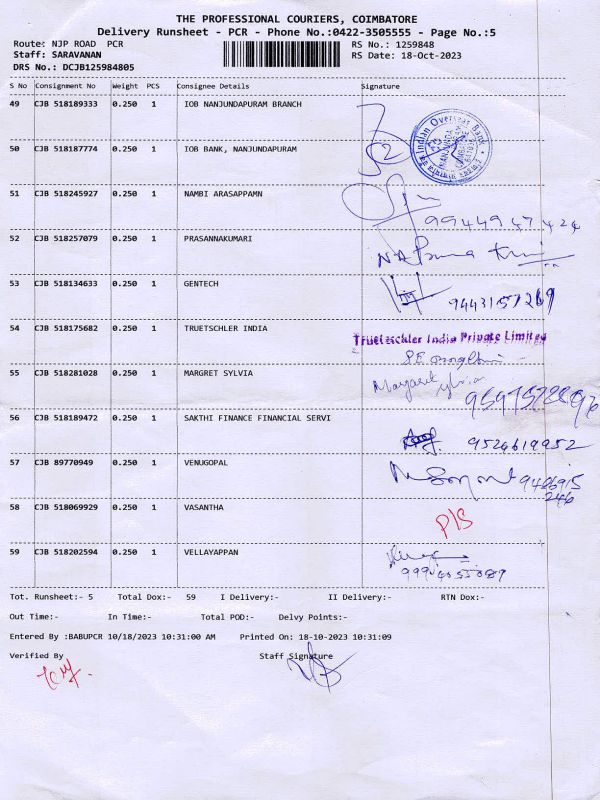 THE PROFESSIONAL COURIERS, COIMBATORE
Delivery Runsheet - PCR - Phone No.:0422-3505555 - Page No.:5
Route: NJP ROAD PCR RS No.: 1259848
Staff: SARAVANAN RS Date: 18-Oct-2023
DRS No.: DCJB125984805
S No Consignment No Weight PCS Consignee Details Signature
49 CJB 518189333 0.250 1 IOB NANJUNDAPURAM BRANCH
Indian Overseas Bank
50 CJB 518187774 0.250 1 IOB BANK, NANJUNDAPURAM
51 CJB 518245927 0.250 1 NAMBI ARASAPPAMN
9944947424
52 CJB 518257079 0.250 1 PRASANNAKUMARI
53 CJB 518134633 0.250 1 GENTECH
9443157269
54 CJB 518175682 0.250 1 TRUETSCHLER INDIA Truetzschler India Private Limited
55 CJB 518281028 0.250 1 MARGRET SYLVIA Margaret Sylvia
56 CJB 518189472 0.250 1 SAKTHI FINANCE FINANCIAL SERVI
9524619952
57 CJB 89770949 0.250 1 VENUGOPAL
9486915
246
58 CJB 518069929 0.250 1 VASANTHA
P/S
59 CJB 518202594 0.250 1 VELLAYAPPAN
Tot. Runsheet:- 5 Total Dox:- 59 I Delivery:- II Delivery:- RTN Dox:-
Out Time:- In Time:- Total POD:- Delvy Points:-
Entered By :BABUPCR 10/18/2023 10:31:00 AM Printed On: 18-10-2023 10:31:09
Verified By Staff Signature